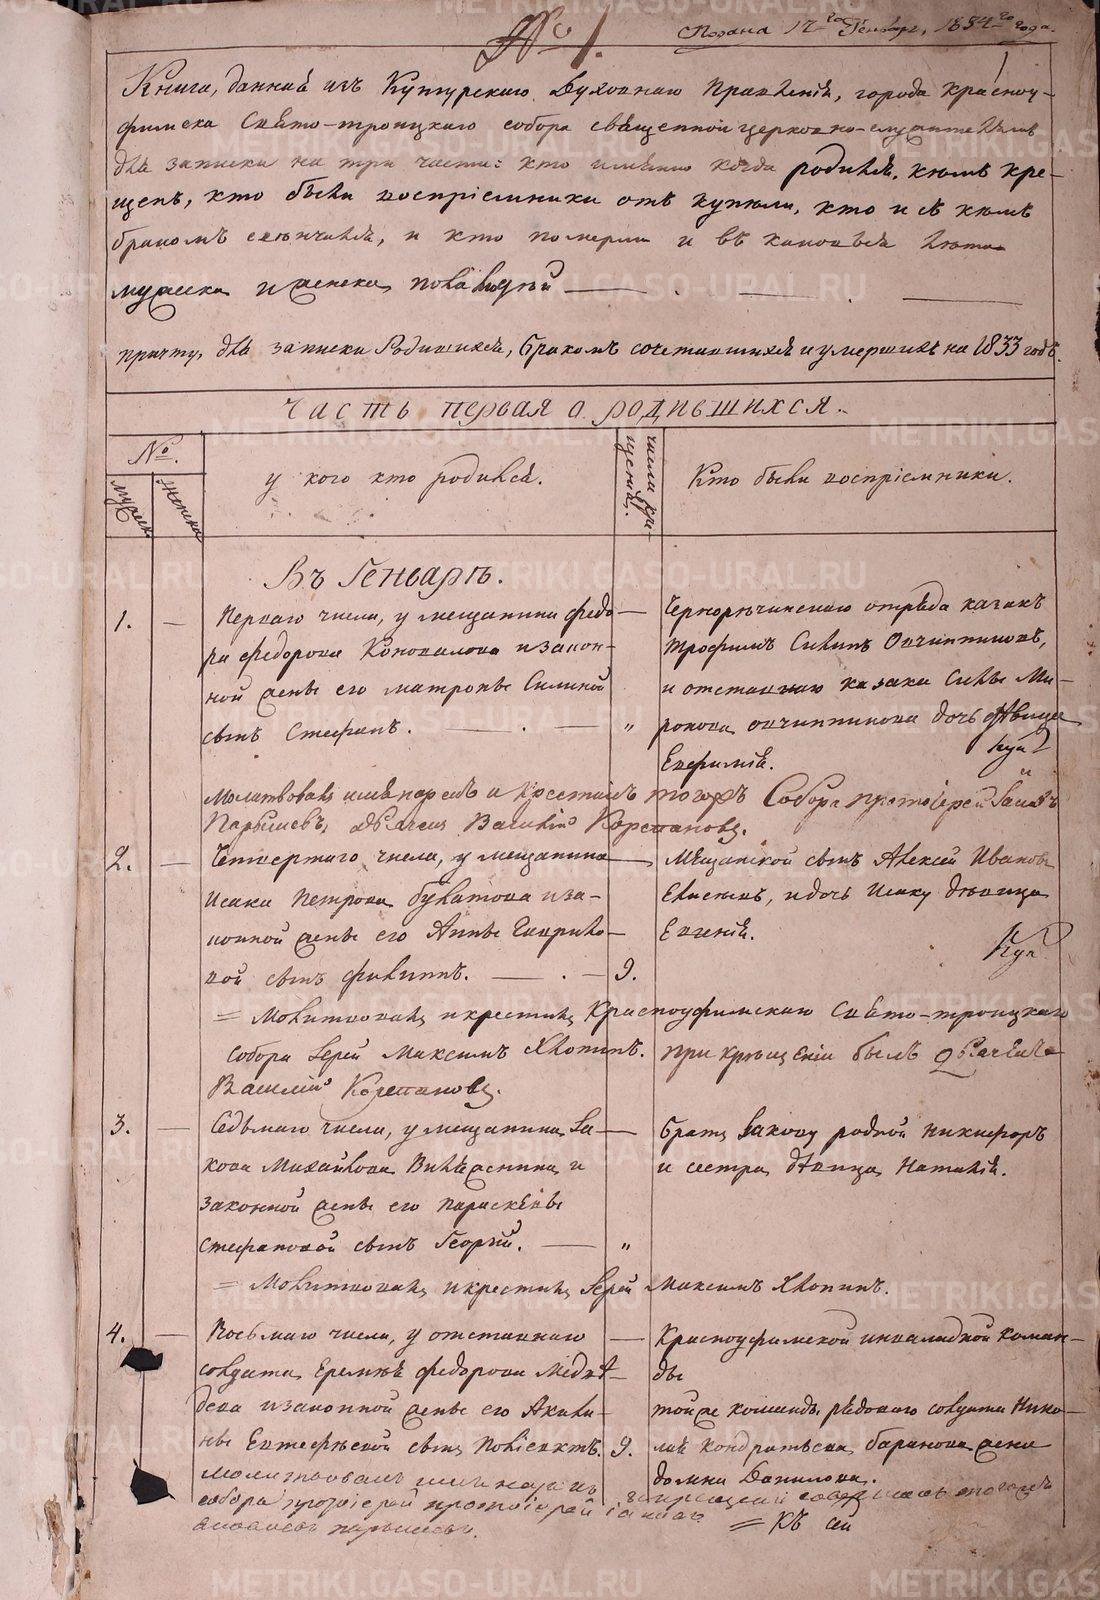 № 1.
Подана 17го Генваря, 1834го года.
1
Книга, данная изъ Кунгурскаго Духовнаго Правленія, города Красноу-
фимска Свято-троицкаго собора священной церковно-служителямъ
для записки на три части: кто имянно когда родился, кѣмъ кре-
щенъ, кто были воспріемники отъ купели, кто и съ кѣмъ
бракомъ свѣнчался, и кто померли и въ каковыя лѣта
мужеска и женска пола людей
причту, для записки Родившихся, бракомъ сочетавшихся и умершихъ на 1833 годъ.
Часть первая о родившихся.
№.
мужеск
женска
у кого кто родился.
числа кре-
щенія.
Кто были воспріемники.
Въ Генварѣ.
1.
Перваго числа, у мещанина Федо-
ра Федорова Коновалова и закон-
ной жены его Матроны Силиной
сынъ Стефанъ.
"
Черноречинскаго отряда казакъ
Трофимъ Силинъ Овчинниковъ,
и отставнаго казака Силы Ми-
ронова Овчинникова дочь девица
Евфимія.
Молитвовалъ имя нарекъ и крестилъ тогожъ Собора протоіерей Іаковъ
Парышевъ, дьячекъ Василій Корепановъ.
2.
Четвертаго числа, у мещанина
Исака Петрова Булатова и за-
конной жены его Анны Гаврило-
вой сынъ Филиппъ.
9.
Мещанской сынъ Алексей Ивановъ
и дочь Исаку девица
Евгенія.
= Молитвовалъ и крестилъ Красноуфимскаго Свято-троицкаго
собора Іерей Максимъ Хлопинъ. при крещеніи былъ дьячекъ
Василій Корепановъ.
3.
Седьмаго числа, у мещанина Іа-
кова Михайлова и
законной жены его Параскевы
Стефановой сынъ Георгій.
"
братъ Іакову родной Никифоръ
и сестра девица Наталія.
= Молитвовалъ и крестилъ Іерей Максимъ Хлопинъ.
4.
Восьмаго числа, у отставнаго
солдата Еремея Федорова Медвѣ-
дева и законной жены его Акили-
ны Евтефѣевой сынъ Поліевктъ.
9.
Красноуфимской инвалидной коман-
ды
тойже команды рядоваго солдата Нико-
лая Кондратьева Баранова жена
Домна Данилова.
Молитвовалъ имя нарекъ
собора протоіерей протоіерей Іаковъ
Парышевъ.
= Къ сей